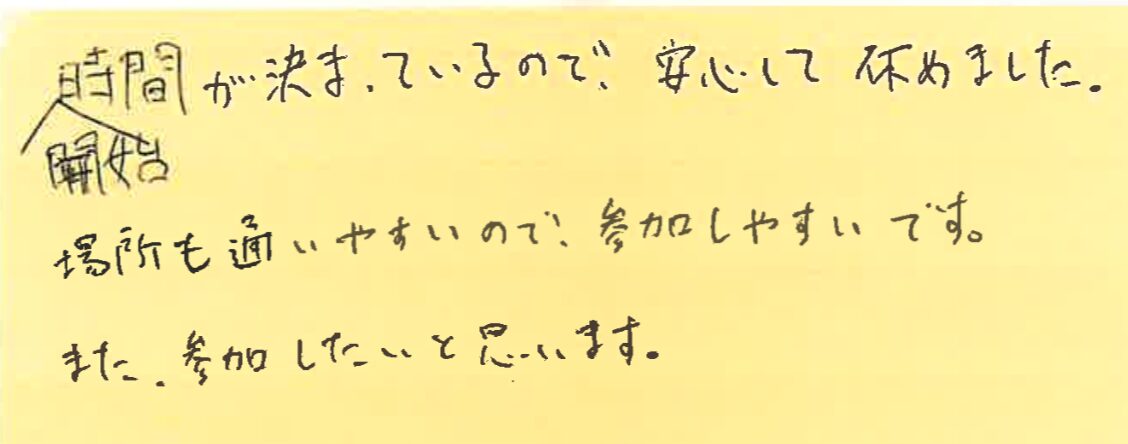 時間が決まっているので、安心して休めました。
開始
場所も通いやすいので、参加しやすいです。
また、参加したいと思います。